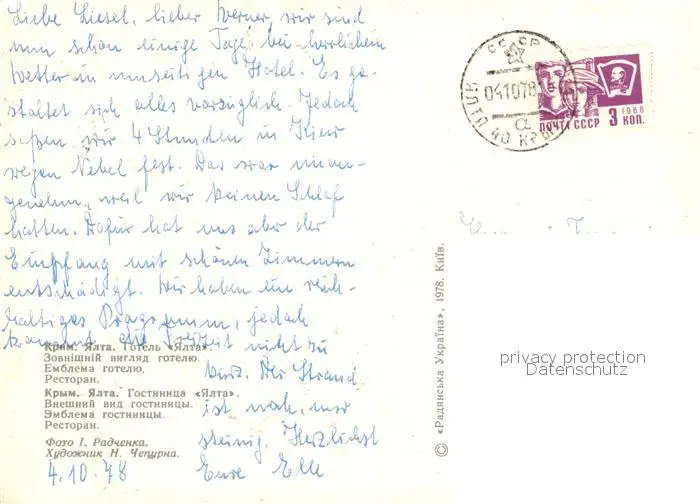 Liebe Liesel, lieber Werner, wir sind
nun schon einige Tage bei herrlichem
Wetter in unseitigen Hotel. Es ge-
staltet sich alles vorzüglich. Jedoch
saßen wir 4 Stunden in Kiew
wegen Nebel fest. Das war unan-
genehm, weil wir keinen Schlaf
hatten. Dafür hat uns aber der
Empfang mit schönen Zimmern
entschädigt. Wir haben ein reich-
haltiges Programm, jedoch
kommt die Freizeit nicht zu
kurz. Der Strand
ist nah, nur
steinig. Herzlichst
Eure Elli
4.10.78
Крим. Ялта. Готель «Ялта».
Зовнішній вигляд готелю.
Емблема готелю.
Ресторан.
Крым. Ялта. Гостиница «Ялта».
Внешний вид гостиницы.
Эмблема гостиницы.
Ресторан.
Фото І. Радченка.
Художник Н. Чепурна.
© «Радянська Україна», 1978. Київ.
СССР
041078
ЯЛТА 40 КРЫМ
а
1966
ПОЧТА СССР 3 КОП.
privacy protection
Datenschutz